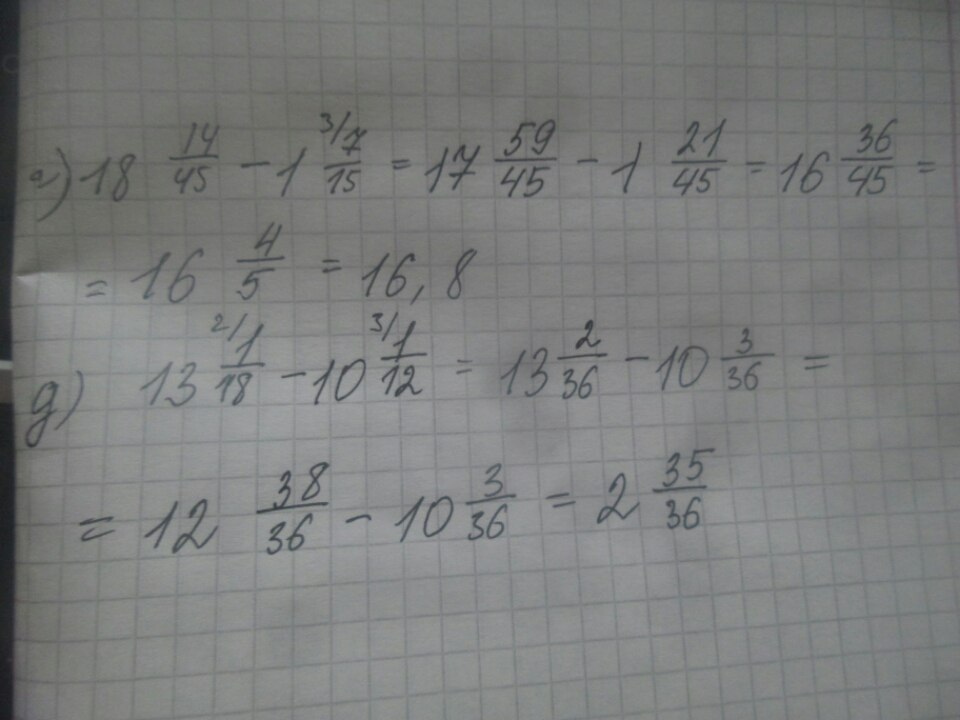 г) 18 14/45 - 1 3/ 7/15 = 17 59/45 - 1 21/45 = 16 36/45 =
= 16 4/5 = 16,8
д) 13 2/ 1/18 - 10 3/ 1/12 = 13 2/36 - 10 3/36 =
= 12 38/36 - 10 3/36 = 2 35/36